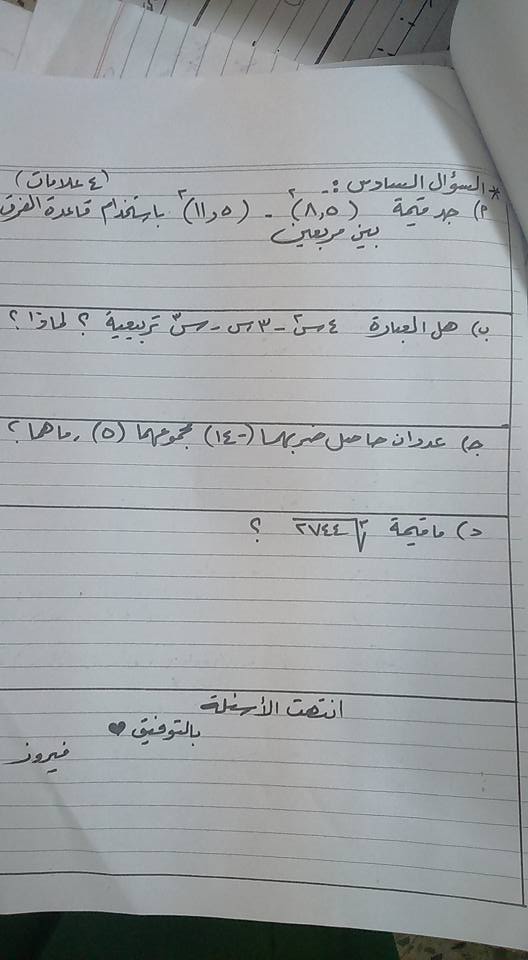 * السؤال السادس :- (٤ علامات)
أ) جد قيمة (٨,٥)² - (١١,٥)² باستخدام قاعدة الفرق
بين مربعين
ب) هل العبارة ٤س² - ٣س - س٣ تربيعية ؟ لماذا ؟
ج) عددان حاصل ضربهما (-١٤) مجموعهما (٥) , ماهما ؟
د) ماقيمة ∛٢٧٤٤ ؟
انتهت الأسئلة
بالتوفيق ♥
فيروز